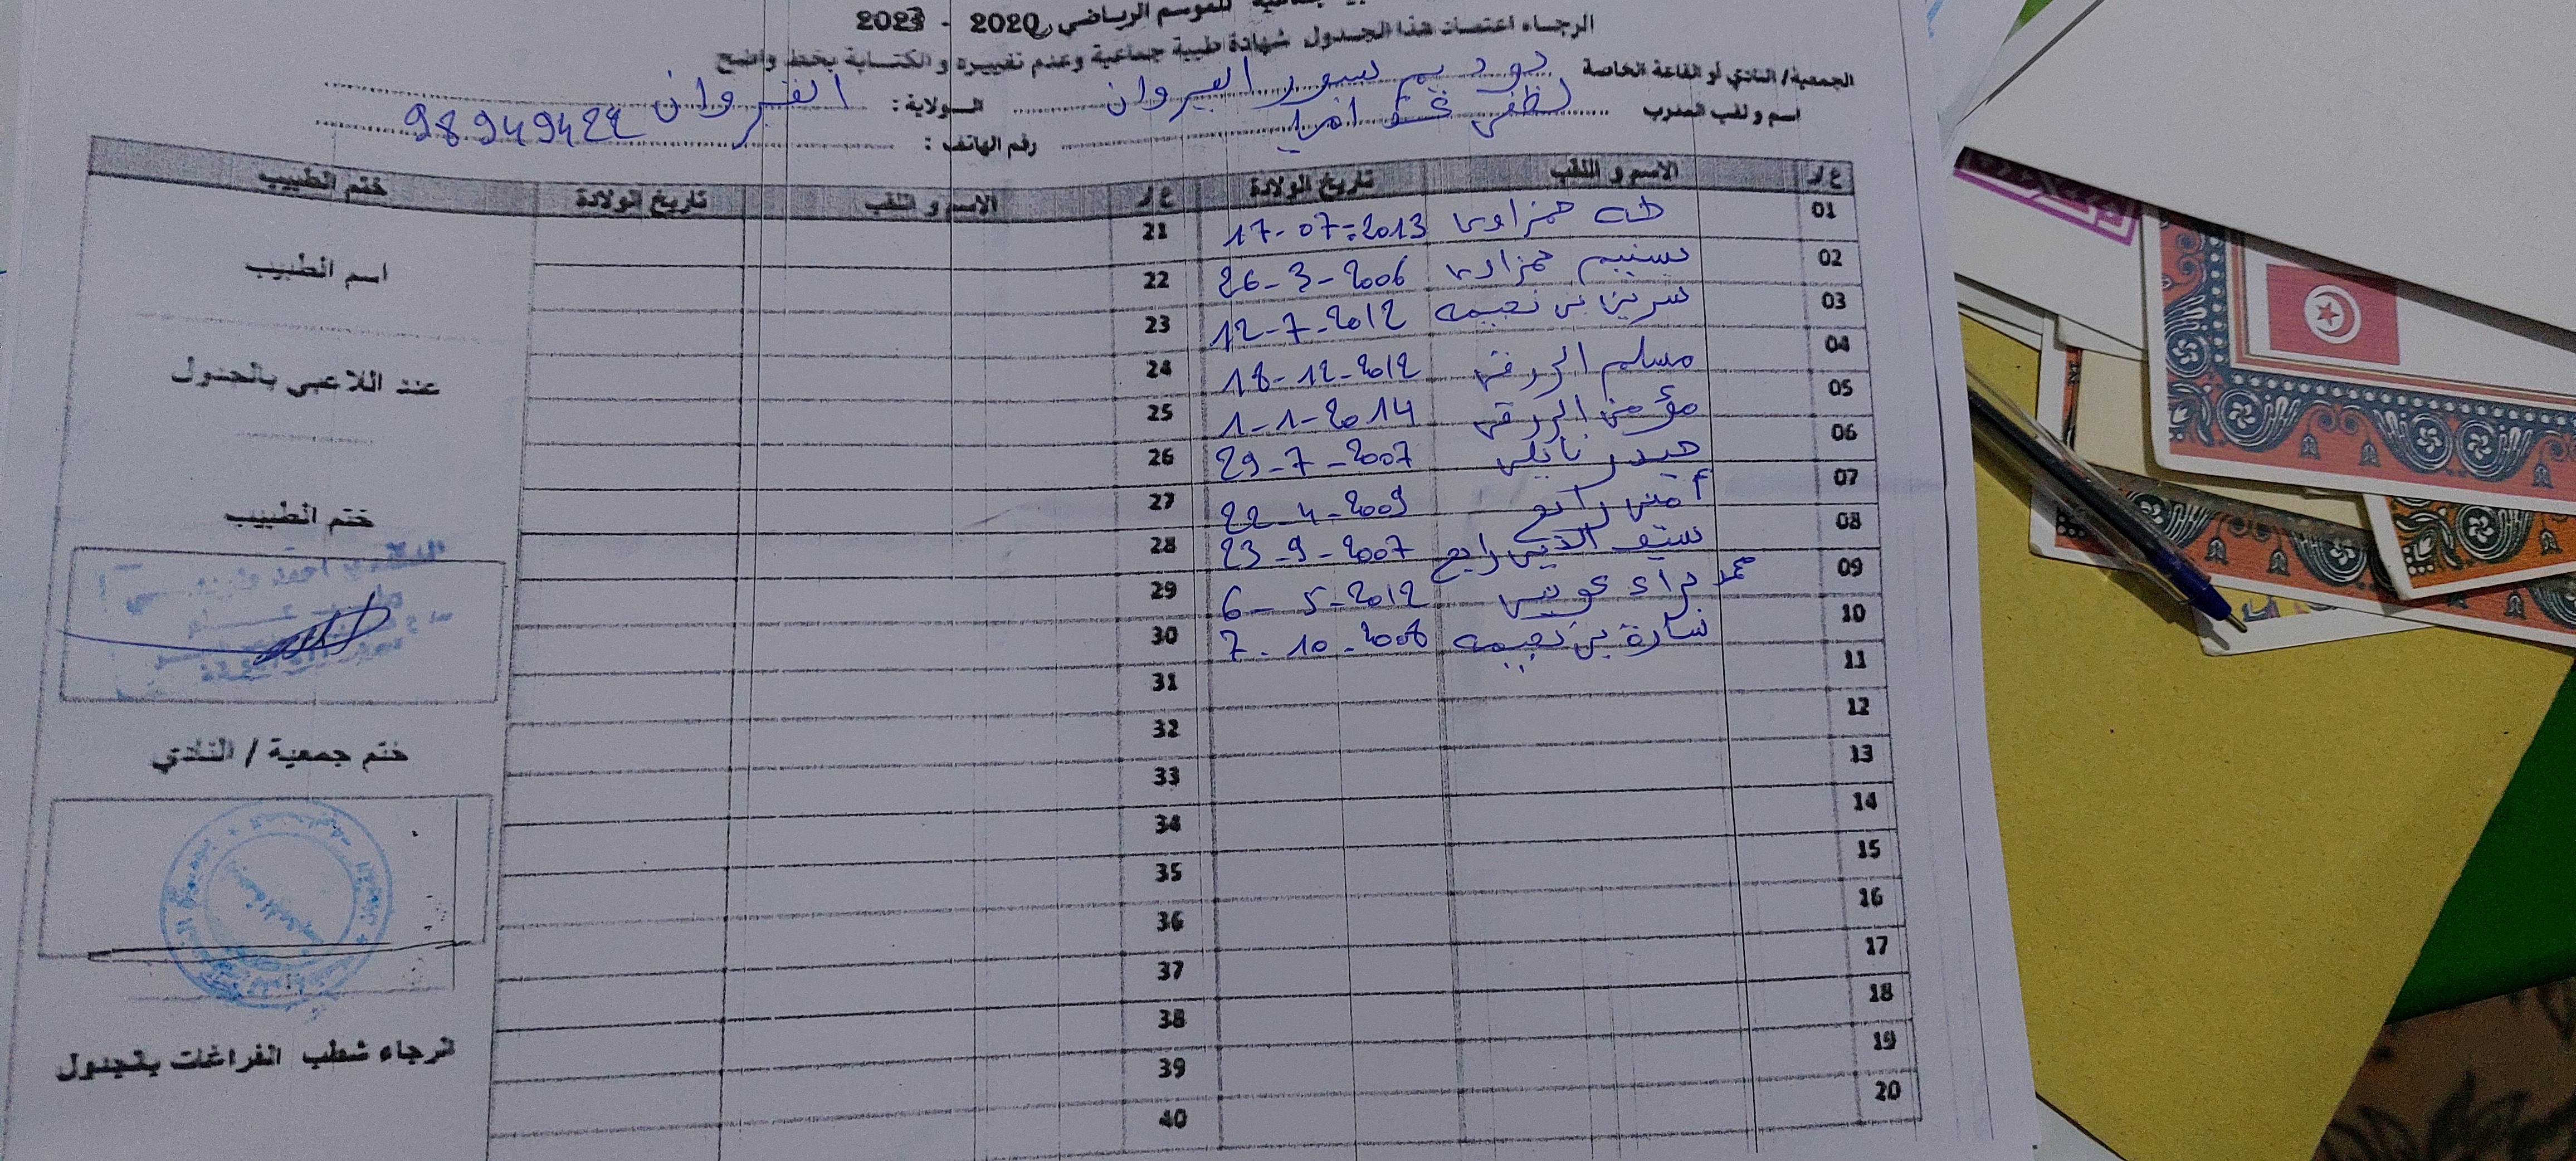 للموسم الرياضي 2020 - 2023
الرجاء اعتماد هذا الجدول شهادة طبية جماعية وعدم تغييره والكتابة بخط واضح
الجمعية/ النادي أو القاعة الخاصة سور القيروان الولاية : القيروان
اسم و لقب المدرب لطفي رقم الهاتف : 98949422
ع/ر الاسم و اللقب تاريخ الولادة ع/ر الاسم و اللقب تاريخ الولادة ختم الطبيب
01 طه حمزاوي 17-07-2013 21
02 تسنيم حمزاوي 26-3-2006 22
اسم الطبيب
03 سرين بن نعيمه 12-7-2012 23
04 مسلم الزرقي 18-12-2012 24
عند اللاعبى بالجدول
05 مؤمن الزرقي 1-1-2014 25
06 حيدر نايلي 29-7-2007 26
07 أمين رابح 22-4-2009 27
ختم الطبيب
08 سيف الدين رابح 23-9-2007 28
09 محمد براء 6-5-2012 29
10 سارة بن نعيمه 7-10-2008 30
11 31
12 32
ختم جمعية / النادي
13 33
14 34
15 35
16 36
17 37
18 38
19 39
الرجاء شطب الفراغات بالجدول
20 40